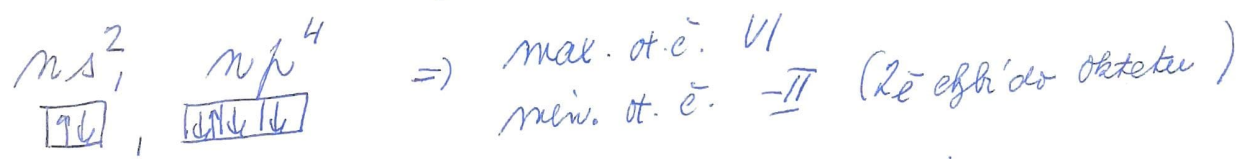 ns², np⁴ => max. ox. č. VI
↑↓, ↓↑↓↓ min. ox. č. -II (2e⁻ chybí do oktetu)